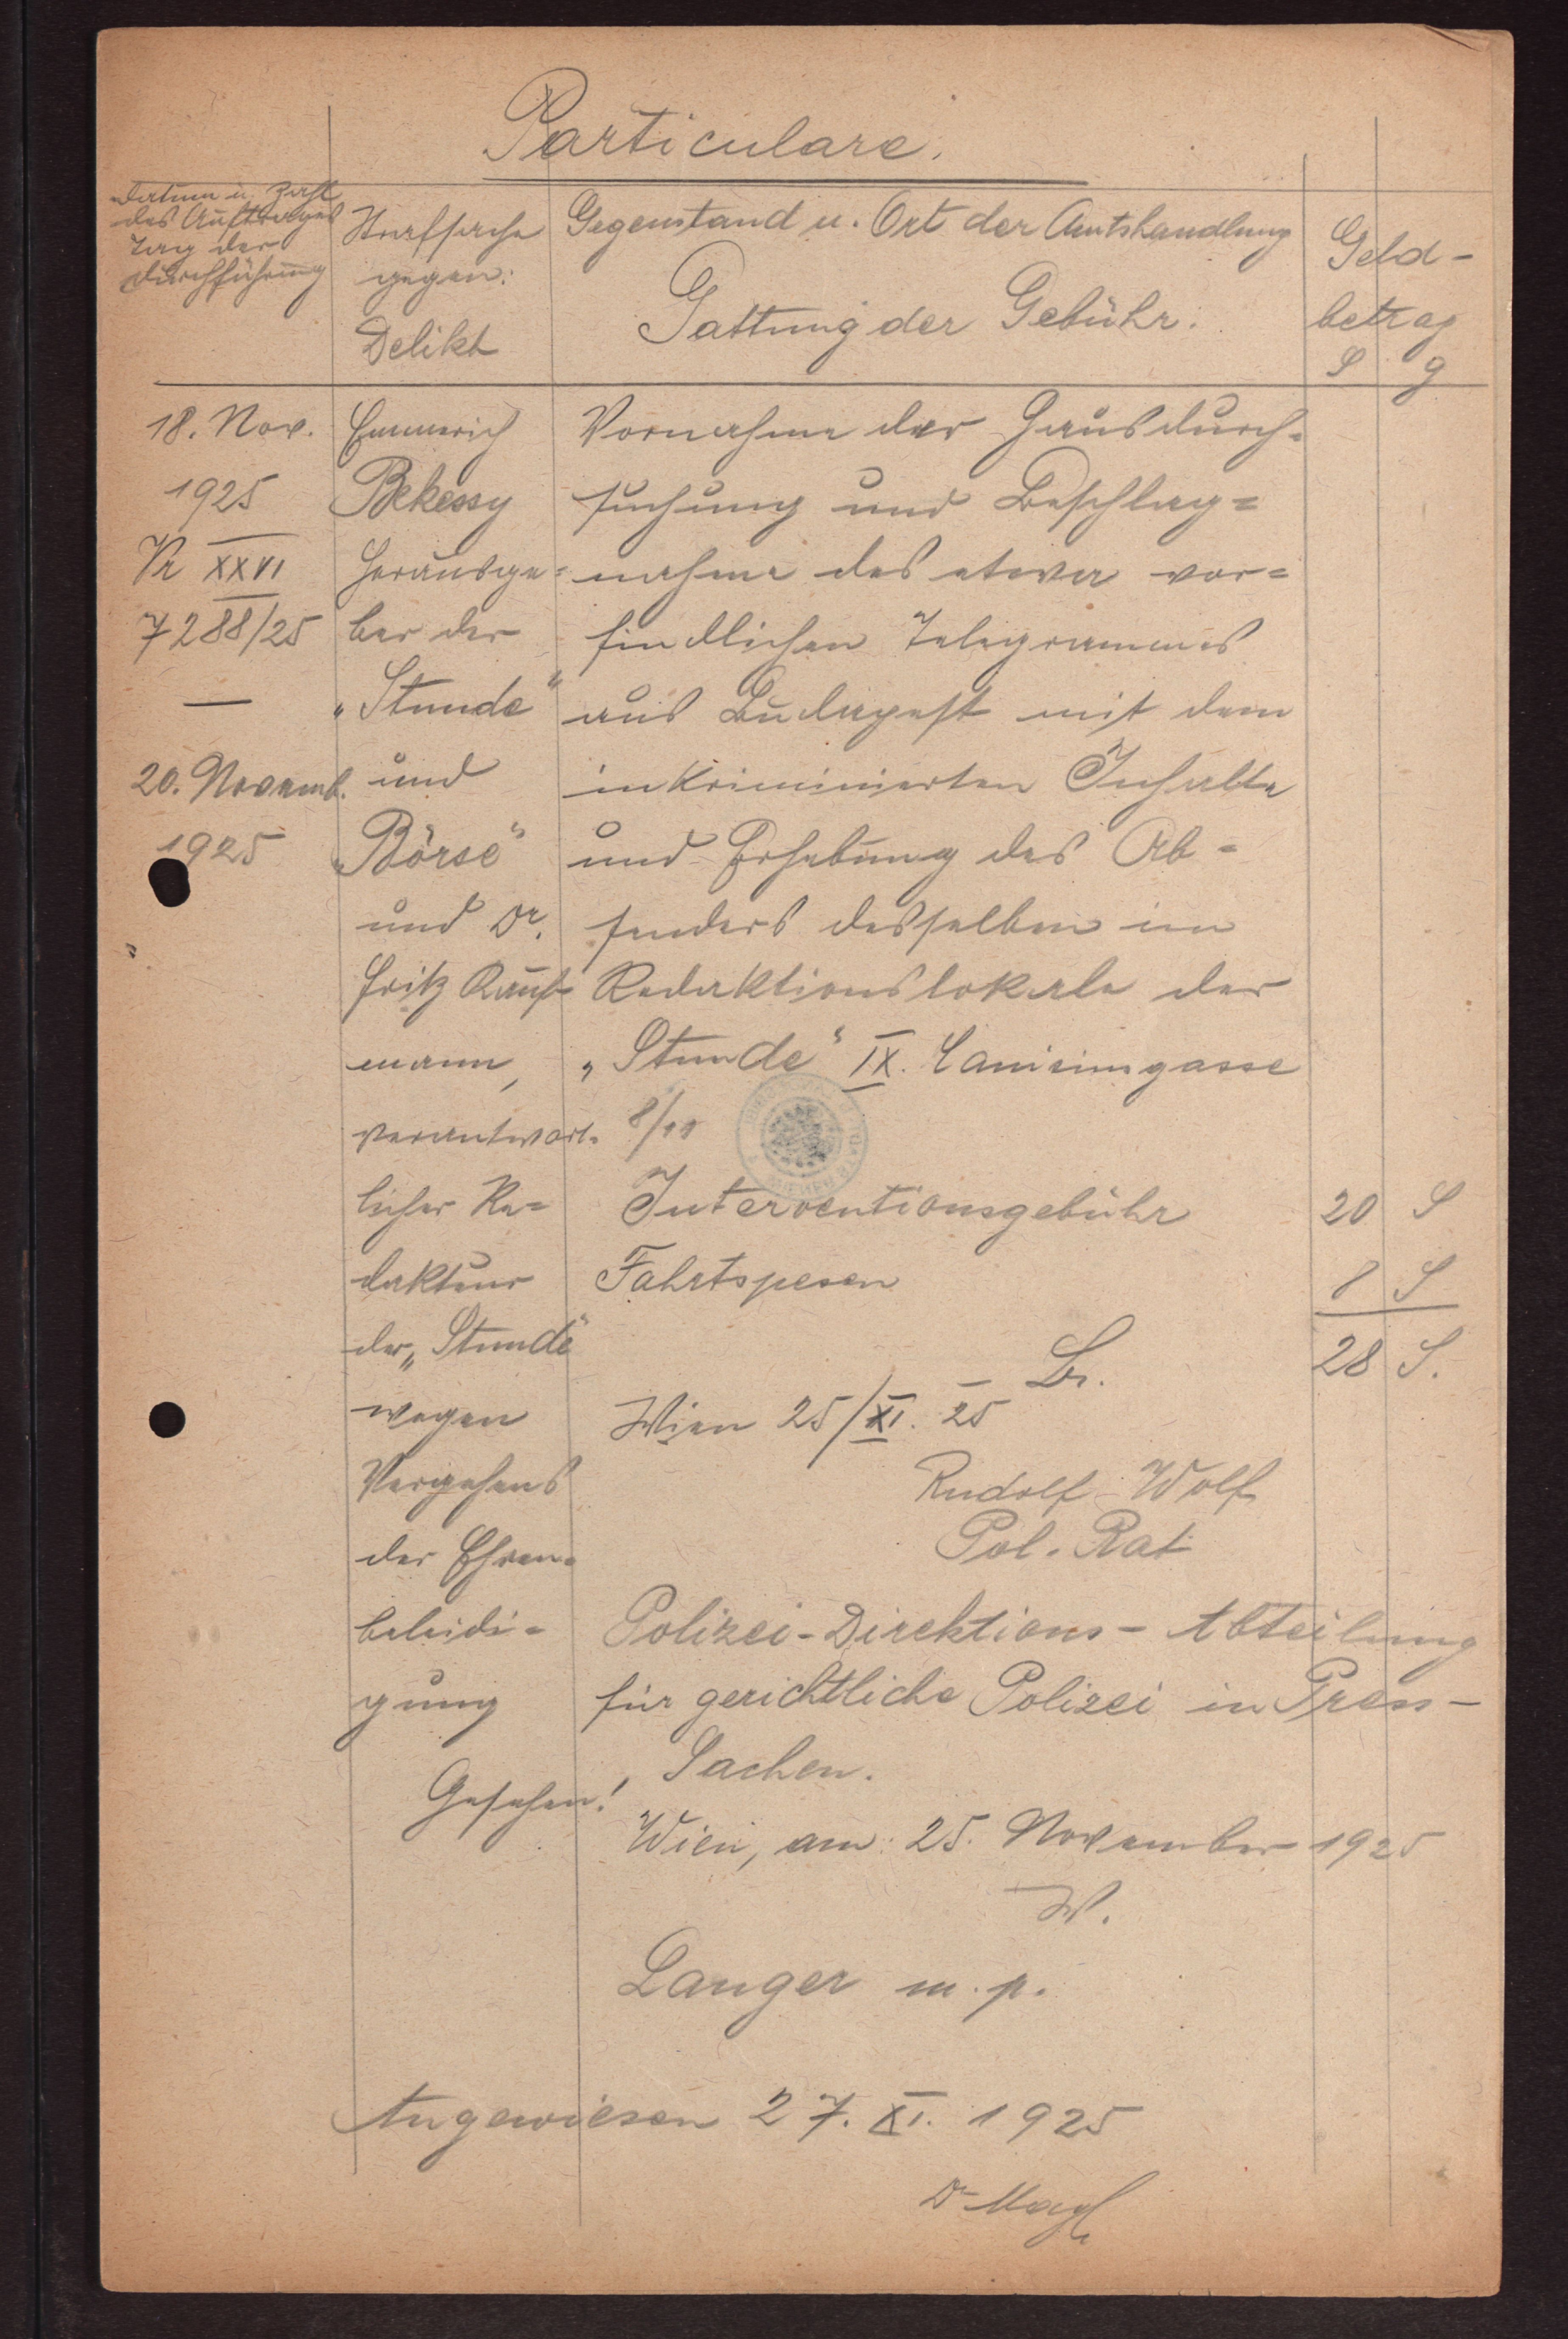 Particulare.
Datum u. Zahl
des Auftrages
Tag der
Durchführung
Strafsache
gegen:
Delikt
Gegenstand u. Ort der Amtshandlung
Gattung der Gebühr.
Geld-
betrag
S g
18. Nov.
1925
Vr XXVI
7288/25
—
20. Novemb.
1925
Emmerich
Bekessy
Herausge=
ber der
„Stunde“
und
„Börse“
und Dr.
Fritz Kauf-
mann,
verantwort-
licher Re=
dakteur
der „Stunde“
wegen
Vergehens
der Ehren-
beleidi=
gung
Vornahme der Hausdurch=
suchung und Beschlag=
nahme des etwa vor=
findlichen Telegrammes
aus Budapest mit dem
inkriminierten Inhalte
und Erhebung des Ab=
senders desselben im
Redaktionslokale der
„Stunde“ IX. Canisiusgasse
8/11
Interventionsgebühr 20 S
Fahrtspesen 8 S
28 S.
Br.
Wien 25/XI. 25
Rudolf Wolf
Pol. Rat
Polizei-Direktions-Abteilung
für gerichtliche Polizei in Press-
Sachen.
Gesehen!
Wien, am 25. November 1925
W.
Langer m. p.
Angewiesen 27. XI. 1925
Dr